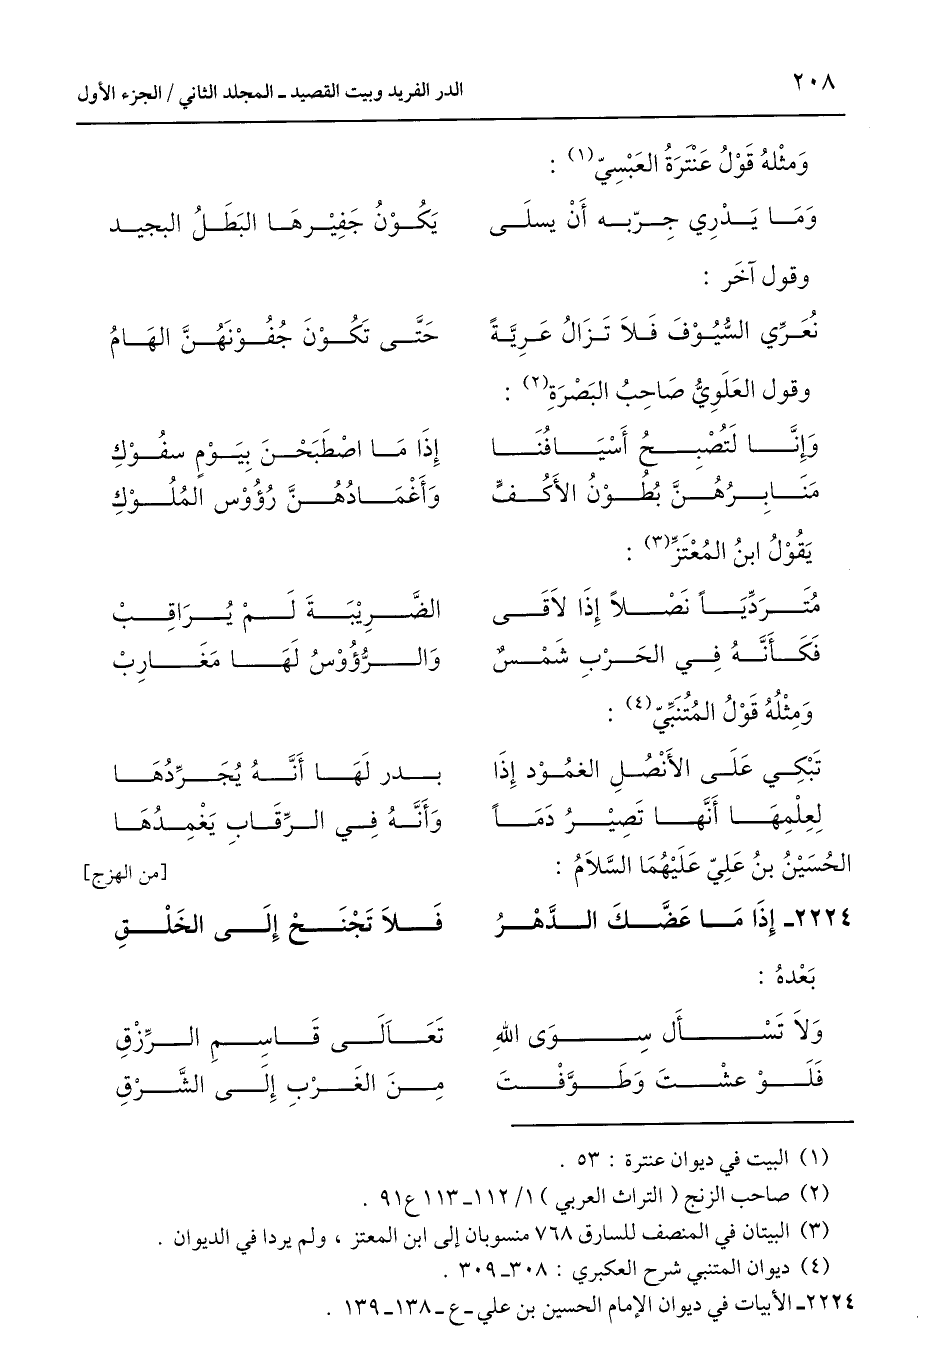 ٢٠٨ الدر الفريد وبيت القصيد ـ المجلد الثاني / الجزء الأول
وَمثْلهُ قَوْلُ عَنْتَرَةُ العَبْسِيّ(١) :
وَمَا يَدْرِي جِرّبه أَنْ يسلَى يَكُوْنُ جَفِيْرهَا البَطَلُ البجيد
وقول آخَر :
نُعَرِّي السُّيُوْفَ فَلاَ تَزَالُ عَرِيَّةً حَتَّى تَكُوْنَ جُفُوْنَهُنَّ الهَامُ
وقول العَلَوِيُّ صَاحِبُ البَصْرَةِ(٢) :
وَإِنَّا لَتُصْبِحُ أَسْيَافُنَا إِذَا مَا اصْطَبَحْنَ بِيَوْمٍ سفُوْكِ
مَنَابِرُهُنَّ بُطُوْنُ الأَكُفِّ وَأَغْمَادُهُنَّ رُؤُوْس المُلُوْكِ
يَقُوْلُ ابنُ المُعْتَزِّ(٣) :
مُتَرَدِّيَاً نَصْلاً إِذَا لاَقَى الضَّرِيْبَةَ لَمْ يُرَاقِبْ
فَكَأَنَّهُ فِي الحَرْبِ شَمْسٌ وَالرُّؤُوْسُ لَهَا مَغَارِبْ
وَمِثْلُهُ قَوْلُ المُتَنَبِّيّ(٤) :
تَبْكِي عَلَى الأَنْصُلِ الغمُوْد إِذَا بدر لَهَا أَنَّهُ يُجَرِّدُهَا
لِعِلْمِهَا أَنَّهَا تَصِيْرُ دَمَاً وَأَنَّهُ فِي الرِّقَابِ يَغْمِدُهَا
الحُسَيْنُ بنُ عَلِيّ عَلَيْهُمَا السَّلاَمُ : [من الهزج]
٢٢٢٤ـ إِذَا مَا عَضَّكَ الدَّهْرُ فَلاَ تَجْنَحْ إِلَى الخَلْقِ
بَعْدهُ :
وَلاَ تَسْأَل سِوَى اللهِ تَعَالَى قَاسِمِ الرِّزْقِ
فَلَوْ عشْتَ وَطَوَّفْتَ مِنَ الغَرْبِ إِلَى الشَّرْقِ
(١) البيت في ديوان عنترة : ٥٣ .
(٢) صاحب الزنج ( التراث العربي ) ١/ ١١٢ـ١١٣ ع٩١ .
(٣) البيتان في المنصف للسارق ٧٦٨ منسوبان إلى ابن المعتز ، ولم يردا في الديوان .
(٤) ديوان المتنبي شرح العكبري : ٣٠٨ـ٣٠٩ .
٢٢٢٤ـ الأبيات في ديوان الإمام الحسين بن علي ـ ع ـ ١٣٨ـ١٣٩ .